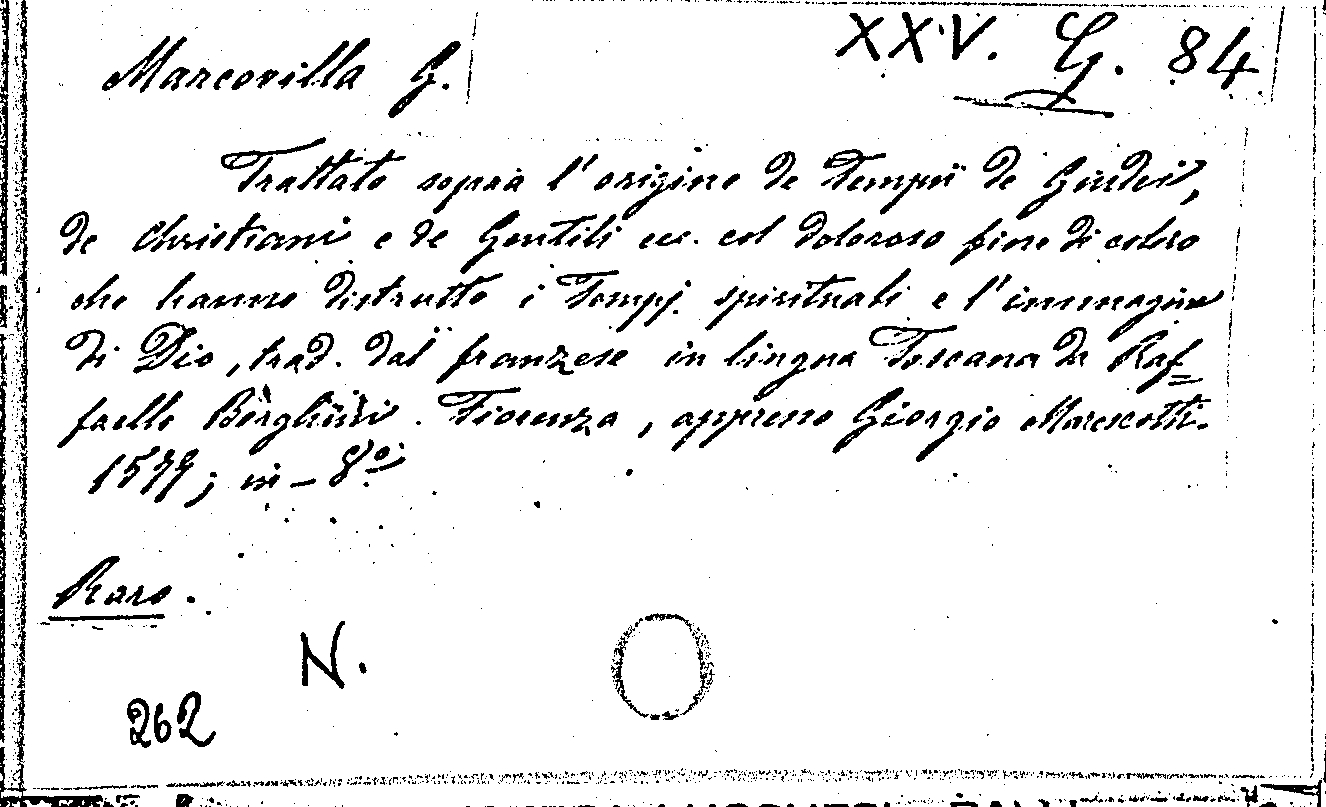 XXV. G. 84
Marcovilla G.
Trattato sopra l'origine de Tempii de Giudei,
de Christiani e de Gentili ecc. col doloroso fine di coloro
che hanno distrutto i Tempj. spirituali e l'immagine
di Dio, trad. dal franzese in lingua Toscana da Raf=
faello Borghini. Fiorenza, appresso Giorgio Marescotti.
1577; in-8º
Raro.
N.
262